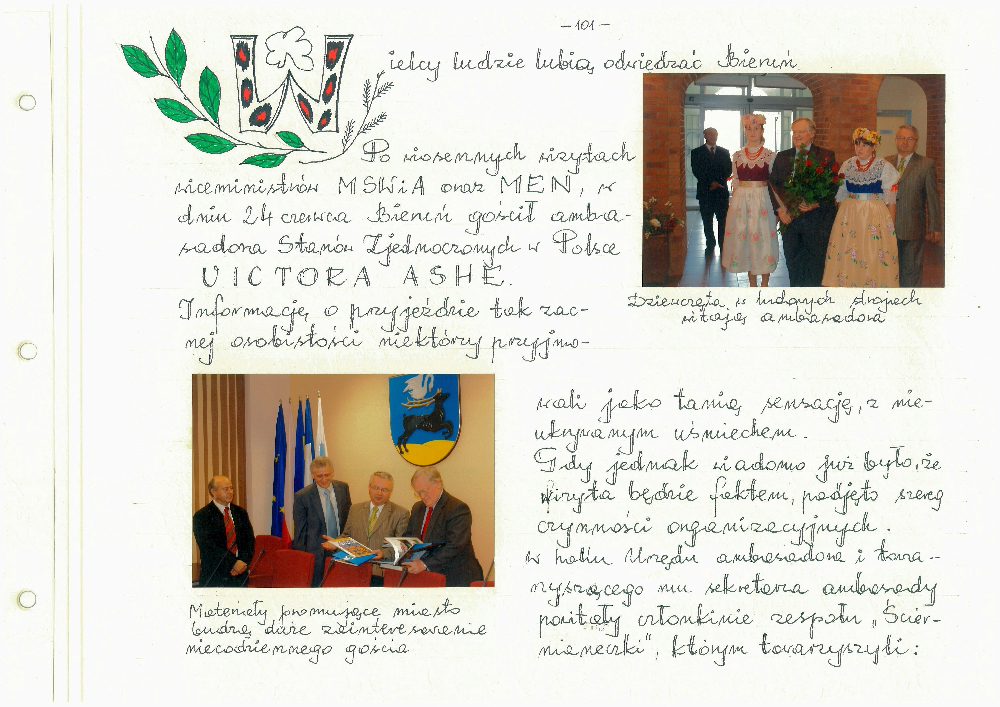 – 101 –
Wielcy ludzie lubią odwiedzać Bieruń
Po wiosennych wizytach
wiceministrów MSWiA oraz MEN, w
dniu 24 czerwca Bieruń gościł amba-
sadora Stanów Zjednoczonych w Polsce
VICTORA ASHE.
Informację o przyjeździe tak zac-
nej osobistości niektórzy przyjmo-
Dziewczęta w ludowych strojach
witają ambasadora
wali jako tanią sensację, z nie-
ukrywanym uśmiechem.
Gdy jednak wiadomo już było, że
wizyta będzie faktem, podjęto szereg
czynności organizacyjnych.
W holu Urzędu ambasadora i towa-
rzyszącego mu sekretarza ambasady
powitały członkinie zespołu „Ścier-
nianeczki", którym towarzyszyli:
Materiały promujące miasto
budzą duże zainteresowanie
niecodziennego gościa